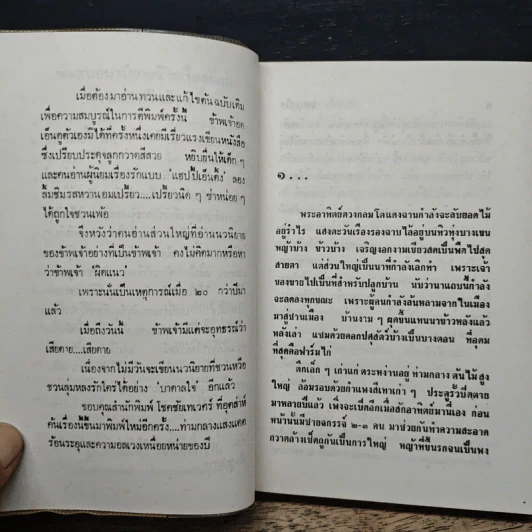 เมื่อต้องมาอ่านทวนและแก้ไขต้นฉบับเดิม
เพื่อความสมบูรณ์ในการตีพิมพ์ครั้งนี้ ข้าพเจ้าอด
เอ็นดูตัวเองมิได้ที่ครั้งหนึ่งเคยมีเรี่ยวแรงเขียนหนังสือ
ซึ่งเปรียบประดุจลูกกวาดสีสวย หยิบยื่นให้เด็ก ๆ
และคนอ่านผู้นิยมเรื่องรักแบบ "แฮปปี้เอ็นดิ้ง" ลอง
ลิ้มชิมรสหวานอมเปรี้ยว....เปรี้ยวนิด ๆ ซ่าหน่อย ๆ
ได้ถูกใจชวนเพ้อ
จึงหวังว่าคนอ่านส่วนใหญ่ที่อ่านนวนิยาย
ของข้าพเจ้าอย่างที่เป็นข้าพเจ้า คงไม่คิดมากหรือหา
ว่าข้าพเจ้า 'ผิดแนว'
เพราะนั่นเป็นเหตุการณ์เมื่อ ๒๐ กว่าปีมา
แล้ว
เมื่อถึงวันนี้ ข้าพเจ้ามีแต่จะอุทธรณ์ว่า
เสียดาย....เสียดาย
เนื่องจากไม่มีวันจะเขียนนวนิยายที่ชวนหรือ
ชวนลุ่มหลงรักใคร่ได้อย่าง 'บาดาลใจ' อีกแล้ว
ขอบคุณสำนักพิมพ์ โชคชัยเทเวศร์ ที่อุตส่าห์
ค้นเรื่องนี้ขึ้นมาพิมพ์ใหม่อีกครั้ง....ท่ามกลางแสงแดด
ร้อนระอุและความอลเวงเหนื่อยหน่ายของปี
๑...
พระอาทิตย์ดวงกลมโตแดงฉานกำลังจะลับยอดไม้
อยู่รำไร แสงตะวันเรืองรองฉาบไปทั่วทุ่งบางเขน
หญ้าบ้าง ข้าวบ้าง เจริญงอกงามเขียวสดเป็นพืดไปสุด
สายตา แต่ส่วนใหญ่เป็นนาที่กำลังเลิกทำ เพราะเจ้า
ของขายไปเป็นพื้นสำหรับปลูกบ้าน นับว่านาแถบนี้กำลัง
จะลดลงทุกขณะ เพราะผู้คนกำลังล้นหลามจากในเมือง
มาสู่บ้านเมือง บ้านงาม ๆ ผุดขึ้นแทนนาข้าวหลังแล้ว
หลังเล่า แซมด้วยคอกปศุสัตว์บ้างเป็นบางตอน ที่อุดม
ที่สุดคือฟาร์มไก่
ตึกเล็ก ๆ เก่าแก่ ตระหง่านอยู่ท่ามกลาง ต้นไม้สูง
ใหญ่ ล้อมรอบด้วยกำแพงสีเทาเก่า ๆ ประตูรั้วปิดตาย
มาหลายปีแล้ว เพิ่งจะเปิดอีกเมื่อสักอาทิตย์มานี่เอง ก่อน
หน้านั้นมีชายฉกรรจ์ ๒-๓ คน มาช่วยกันทำความสะอาด
กวาดล้างเช็ดถูกันเป็นการใหญ่ หญ้าที่ขึ้นรกจนเป็นพง